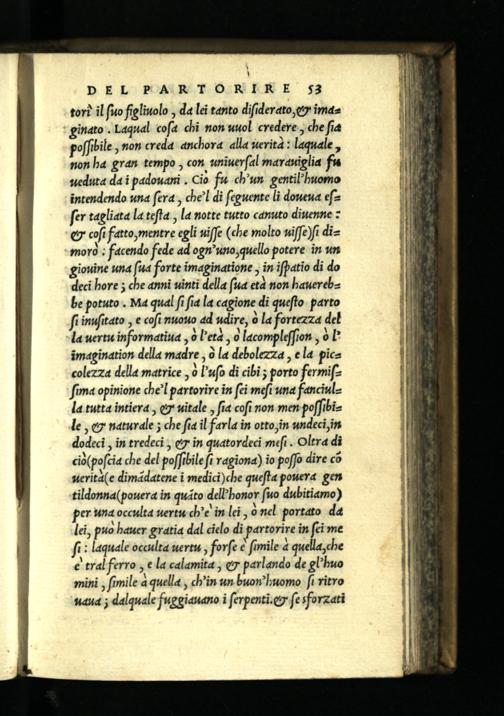 DEL PARTORIRE 53
torì il suo figliuolo, da lei tanto disiderato,& ima=
ginato. Laqual cosa chi non vuol credere, che sia
possibile, non creda anchora alla verità: laquale,
non ha gran tempo, con universal maraviglia fu
veduta da i padovani. Ciò fu ch'un gentil'huomo
intendendo una sera, che'l dì seguente li doveva es=
ser tagliata la testa, la notte tutto canuto divenne:
& così fatto, mentre egli visse (che molto visse) si di=
morò: facendo fede ad ogn'uno, quello potere in un
giovine una sua forte imaginatione, in ispatio di do
deci hore; che anni vinti della sua età non havereb=
be potuto. Ma qual si sia la cagione di questo parto
si inusitato, e così nuovo ad udire, ò la fortezza del
la vertu informativa, ò l'età, ò lacomplession, ò l'
imagination della madre, ò la debolezza, e la pic=
colezza della matrice, ò l'uso di cibi; porto fermis=
sima opinione che'l partorire in sei mesi una fanciul=
la tutta intiera, & vitale, sia così non men possibi=
le, & naturale; che sia il farla in otto, in undeci, in
dodeci, in tredeci, & in quatordeci mesi. Oltra di
ciò (poscia che del possibile si ragiona) io posso dire cō
verità (e dimādatene i medici) che questa povera gen
tildonna (povera in quāto dell'honor suo dubitiamo)
per una occulta vertu ch'è in lei, ò nel portato da
lei, può haver gratia dal cielo di partorire in sei me
si: laquale occulta vertu, forse è simile à quella, che
è tral ferro, e la calamita, & parlando de gl'huo
mini, simile à quella, ch'in un buon'huomo si ritro
vava; dalquale fuggiavano i serpenti. & se sforzati